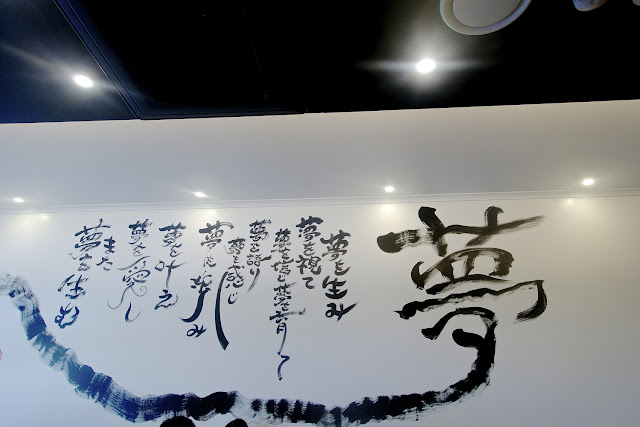 夢
夢を生み
夢を視て
夢を 夢を育て
夢を語り
夢を感じ
夢に挑み
夢を叶え
夢を愛し
また
夢を生む